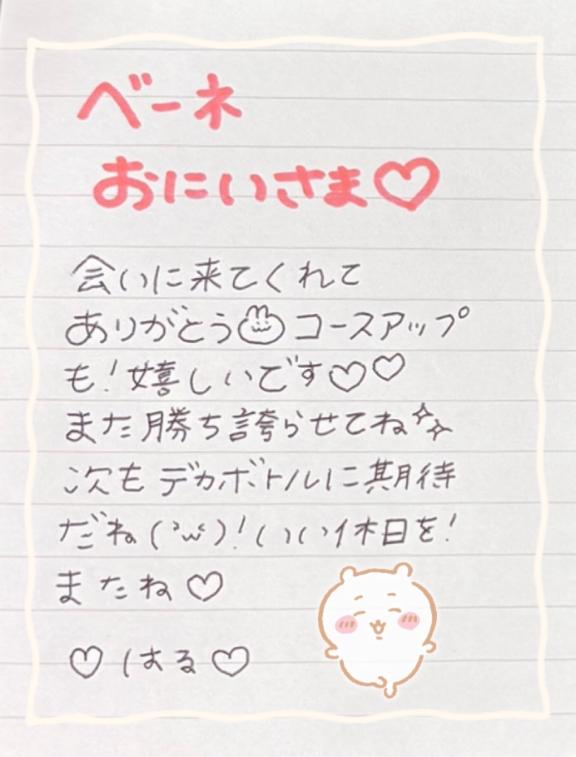 ベーネ
おにいさま♡
会いに来てくれて
ありがとう コースアップ
も!嬉しいです♡♡
また勝ち誇らせてね
次もデカボトルに期待
だね('ω')!いい休日を!
またね♡
♡はる♡